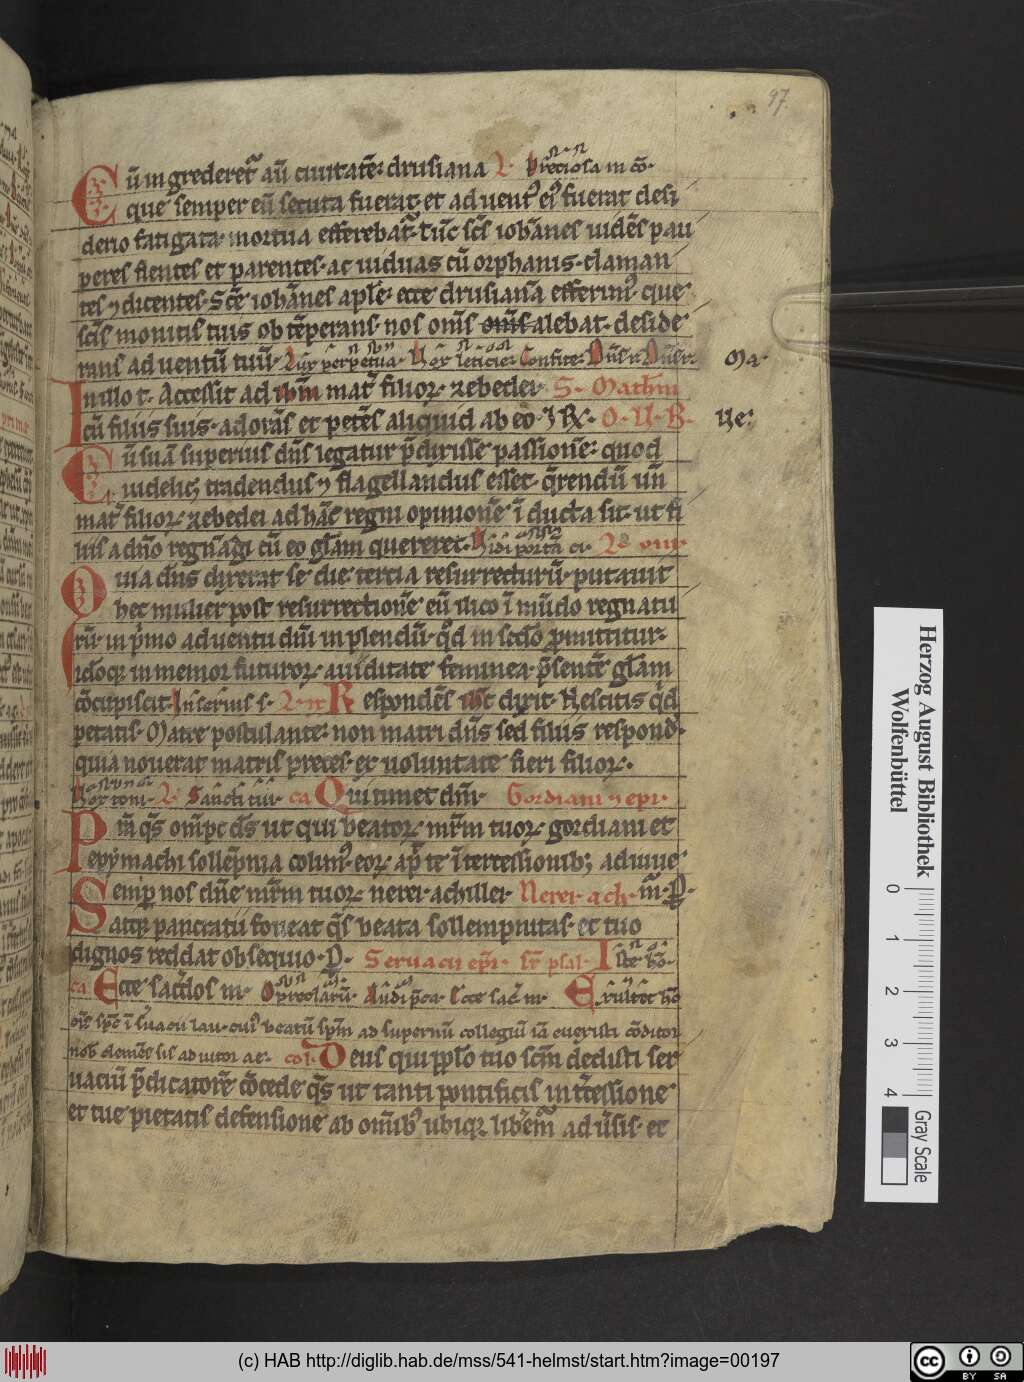 97.
Cū ingrederet᷑ aū ciuitatē. drusiana Preciosa in cō.
que semper eū secuta fuerat. et aduentꝰ eiꝰ fuerat desi
derio fatigata. mortua efferebat᷑. tūc scs iohānes uidēs pau
peres flentes et parentes. ac uiduas cū orphanis. claman
tes ⁊ dicentes. Scē iohānes aplē. ecce drusianā efferimꝰ que
scis monitis tuis obtēperans. nos om̄s om̄s alebat. deside
rans aduentū tuū. Lux perpetua. leticie. Confite.
In illo t. Accessit ad ihm mat᷑ filioꝝ zebedei. S. Mathm
cū filiis suis. adorās et petēs aliquid ab eo. ⁊ R. O. V. R. Ue:
Cū suā superius dn̄s legatur p̄dixisse passionē. quod
uidelicꝫ tradendus ⁊ flagellandus esset. q̄rendū un̄
mat᷑ filioꝝ zebedei ad hāc regni opinionē ī ducta sit. ut fi
liis a dn̄o regnādi cū eo glām quereret. Vidi portā ci. Lc viii.
Quia dn̄s dixerat se die tercia resurrecturū. putauit
hec mulier post resurrectionē eū ilico ī mūdo regnatu
rū. in p̄mo aduentu dn̄i inplendū. qd̄ in sc̄do promittitur.
idoqꝫ inmemor futuroꝝ. auiditate feminea. p̄sentē glām
cōcupiscit. Inferius s. Respondēs ihc dixit. Nescitis qd̄
petatis. Matre postulante. non matri dn̄s sed filiis respond.
quia nouerat matris preces. et uoluntate fieri filioꝝ.
Vox toni. Sancti tui. ca Qui timet dm̄. Gordiani ⁊ epi.
Pm̄ qs om̄pc ds ut qui beatoꝝ mr̄m tuoꝝ. gordiani et
epymachi sollēpnia colimꝰ. eoꝝ ap̄ te ītercessionibꝫ adiuue
Semp nos dn̄e mr̄m tuoꝝ nerei. achillei. Nerei. ach. m̄. P.
atqꝫ pancratii foueat qs beata sollempnitas. et tuo
dignos reddat obsequio. P. Seruacii epi. sr psal. Iste hō.
ca Ecce sacdos m. O preclarū. Audi pca. Ecce sac m. Exultet hō
om̄e spc ī suacii lau. cuiꝰ beatū spm̄ ad supernū collegiū iā euexisti cōditor
nob clemēs sis adiutor ae. col. Deus qui pplo tuo scm̄ dedisti ser
uaciū p̄dicatorē cōcede qs ut tanti pontificis int̄cessione
et tue pietatis defensione ab om̄ibꝰ ubiqꝫ libēm᷑ aduersis. et
Herzog August Bibliothek
Wolfenbüttel
0 1 2 3 4
Gray Scale
(c) HAB http://diglib.hab.de/mss/541-helmst/start.htm?image=00197
cc BY SA